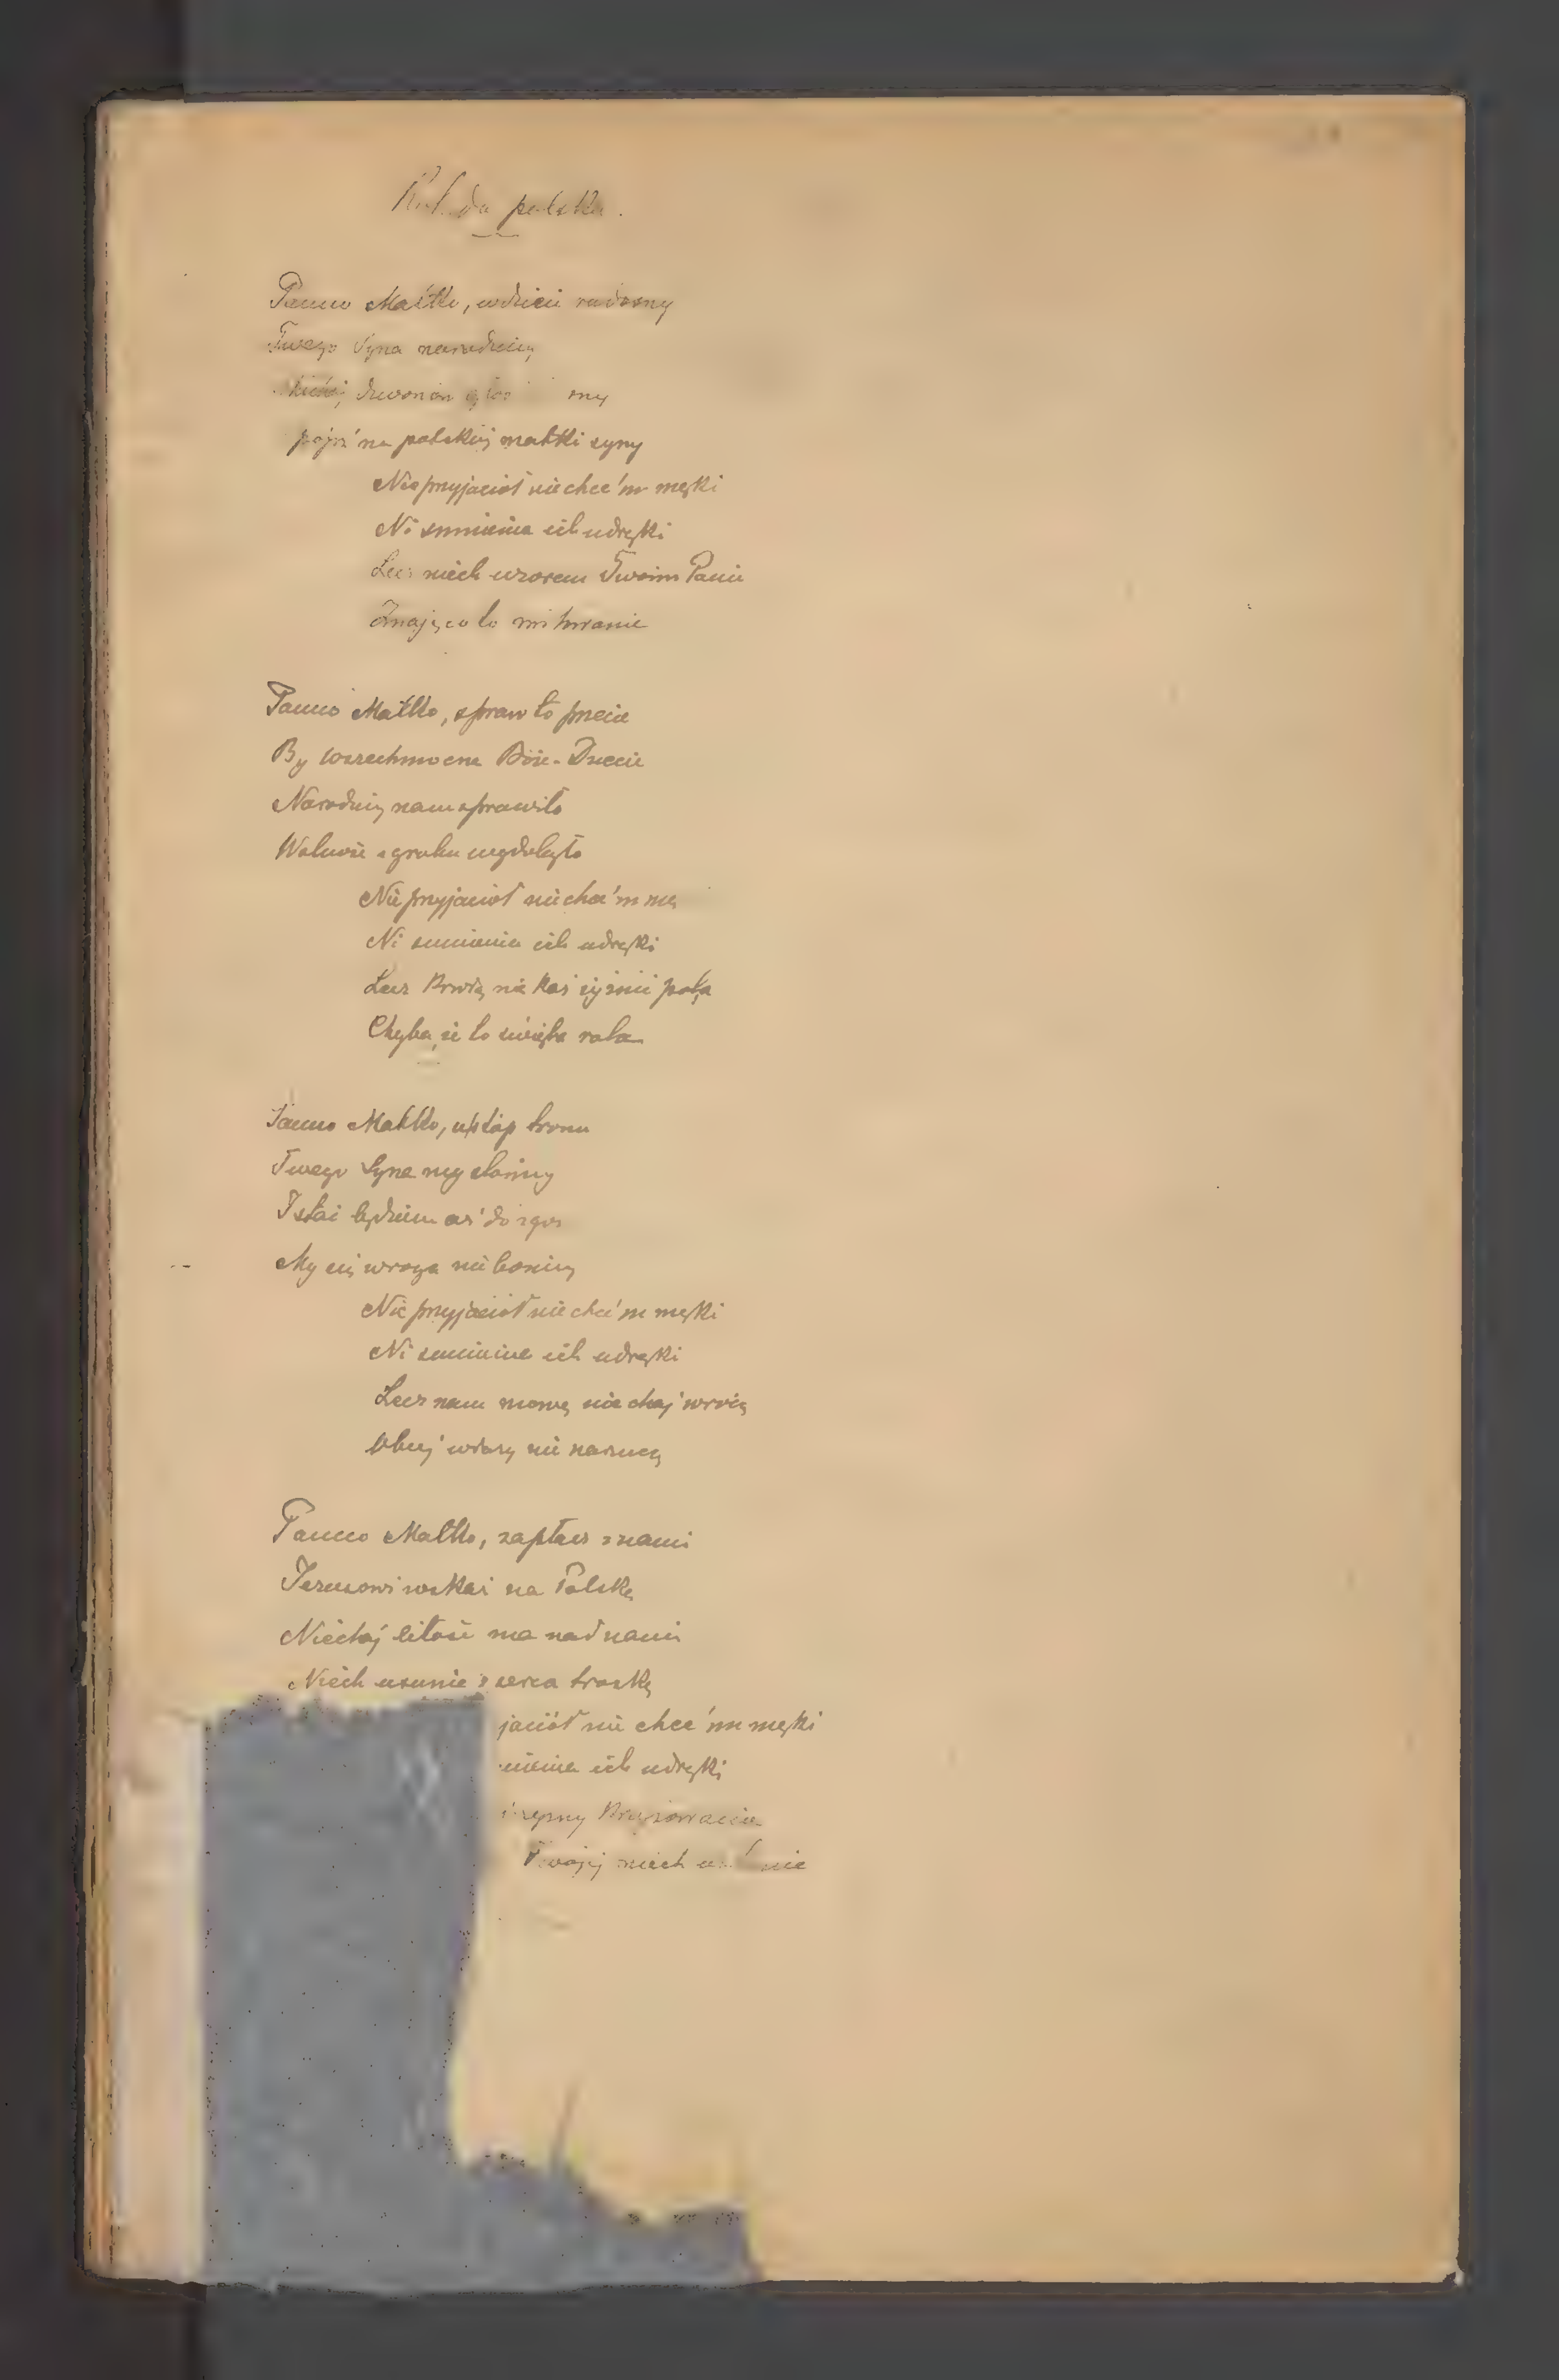 Kol da polska.
Panno Matko, w dzień radosny
Twego Syna narodziny
dzwonów
pojrz na polskiej matki syny
Nieprzyjaciół nie chce'm męki
Ni sumienia ich udręki
Lecz niech wzorem Twoim Panie
Znają co to miłowanie
Panno Matko, spraw to przecie
By wszechmocne Boże-Dziecie
Narodziny nam sprawiło
Wolność z grobu wydobyło
Nieprzyjaciół nie chce'm mę
Ni sumienia ich udręki
Lecz krwią niechaj żyźnie pola
Chyba, że to święta rola
Panno Matko, ustąp tronu
Twego Syna my
I stać będziem aż do zgon
My się wroga nie boimy
Nieprzyjaciół nie chce'm męki
Ni sumienia ich udręki
Lecz nam mowę niechaj wrócą
Obcej władzy nie narzucą
Panno Matko, zapłacz z nami
Jezusowi wskaż na Polskę
Niechaj litość ma nad nami
Niech usunie z serca troskę
jaciół nie chce'm męki
mienia ich udręki
Krzyżowanie
Twojej niech